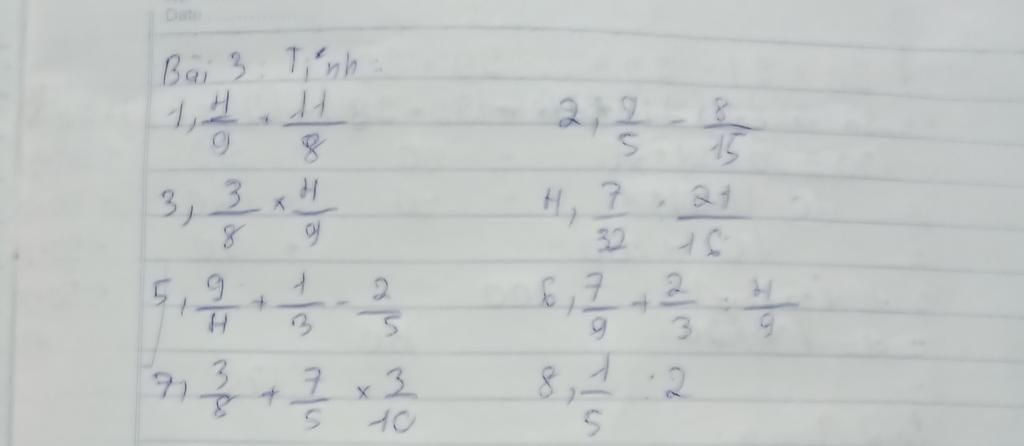 Date
Bài 3 : Tính :
1, 4/9 + 11/8    2, 9/5 - 8/15
3, 3/8 × 4/9    4, 7/32 : 21/16
5, 9/4 + 1/3 - 2/5    6, 7/9 + 2/3 : 4/9
7, 3/8 + 7/5 × 3/10    8, 1/5 : 2